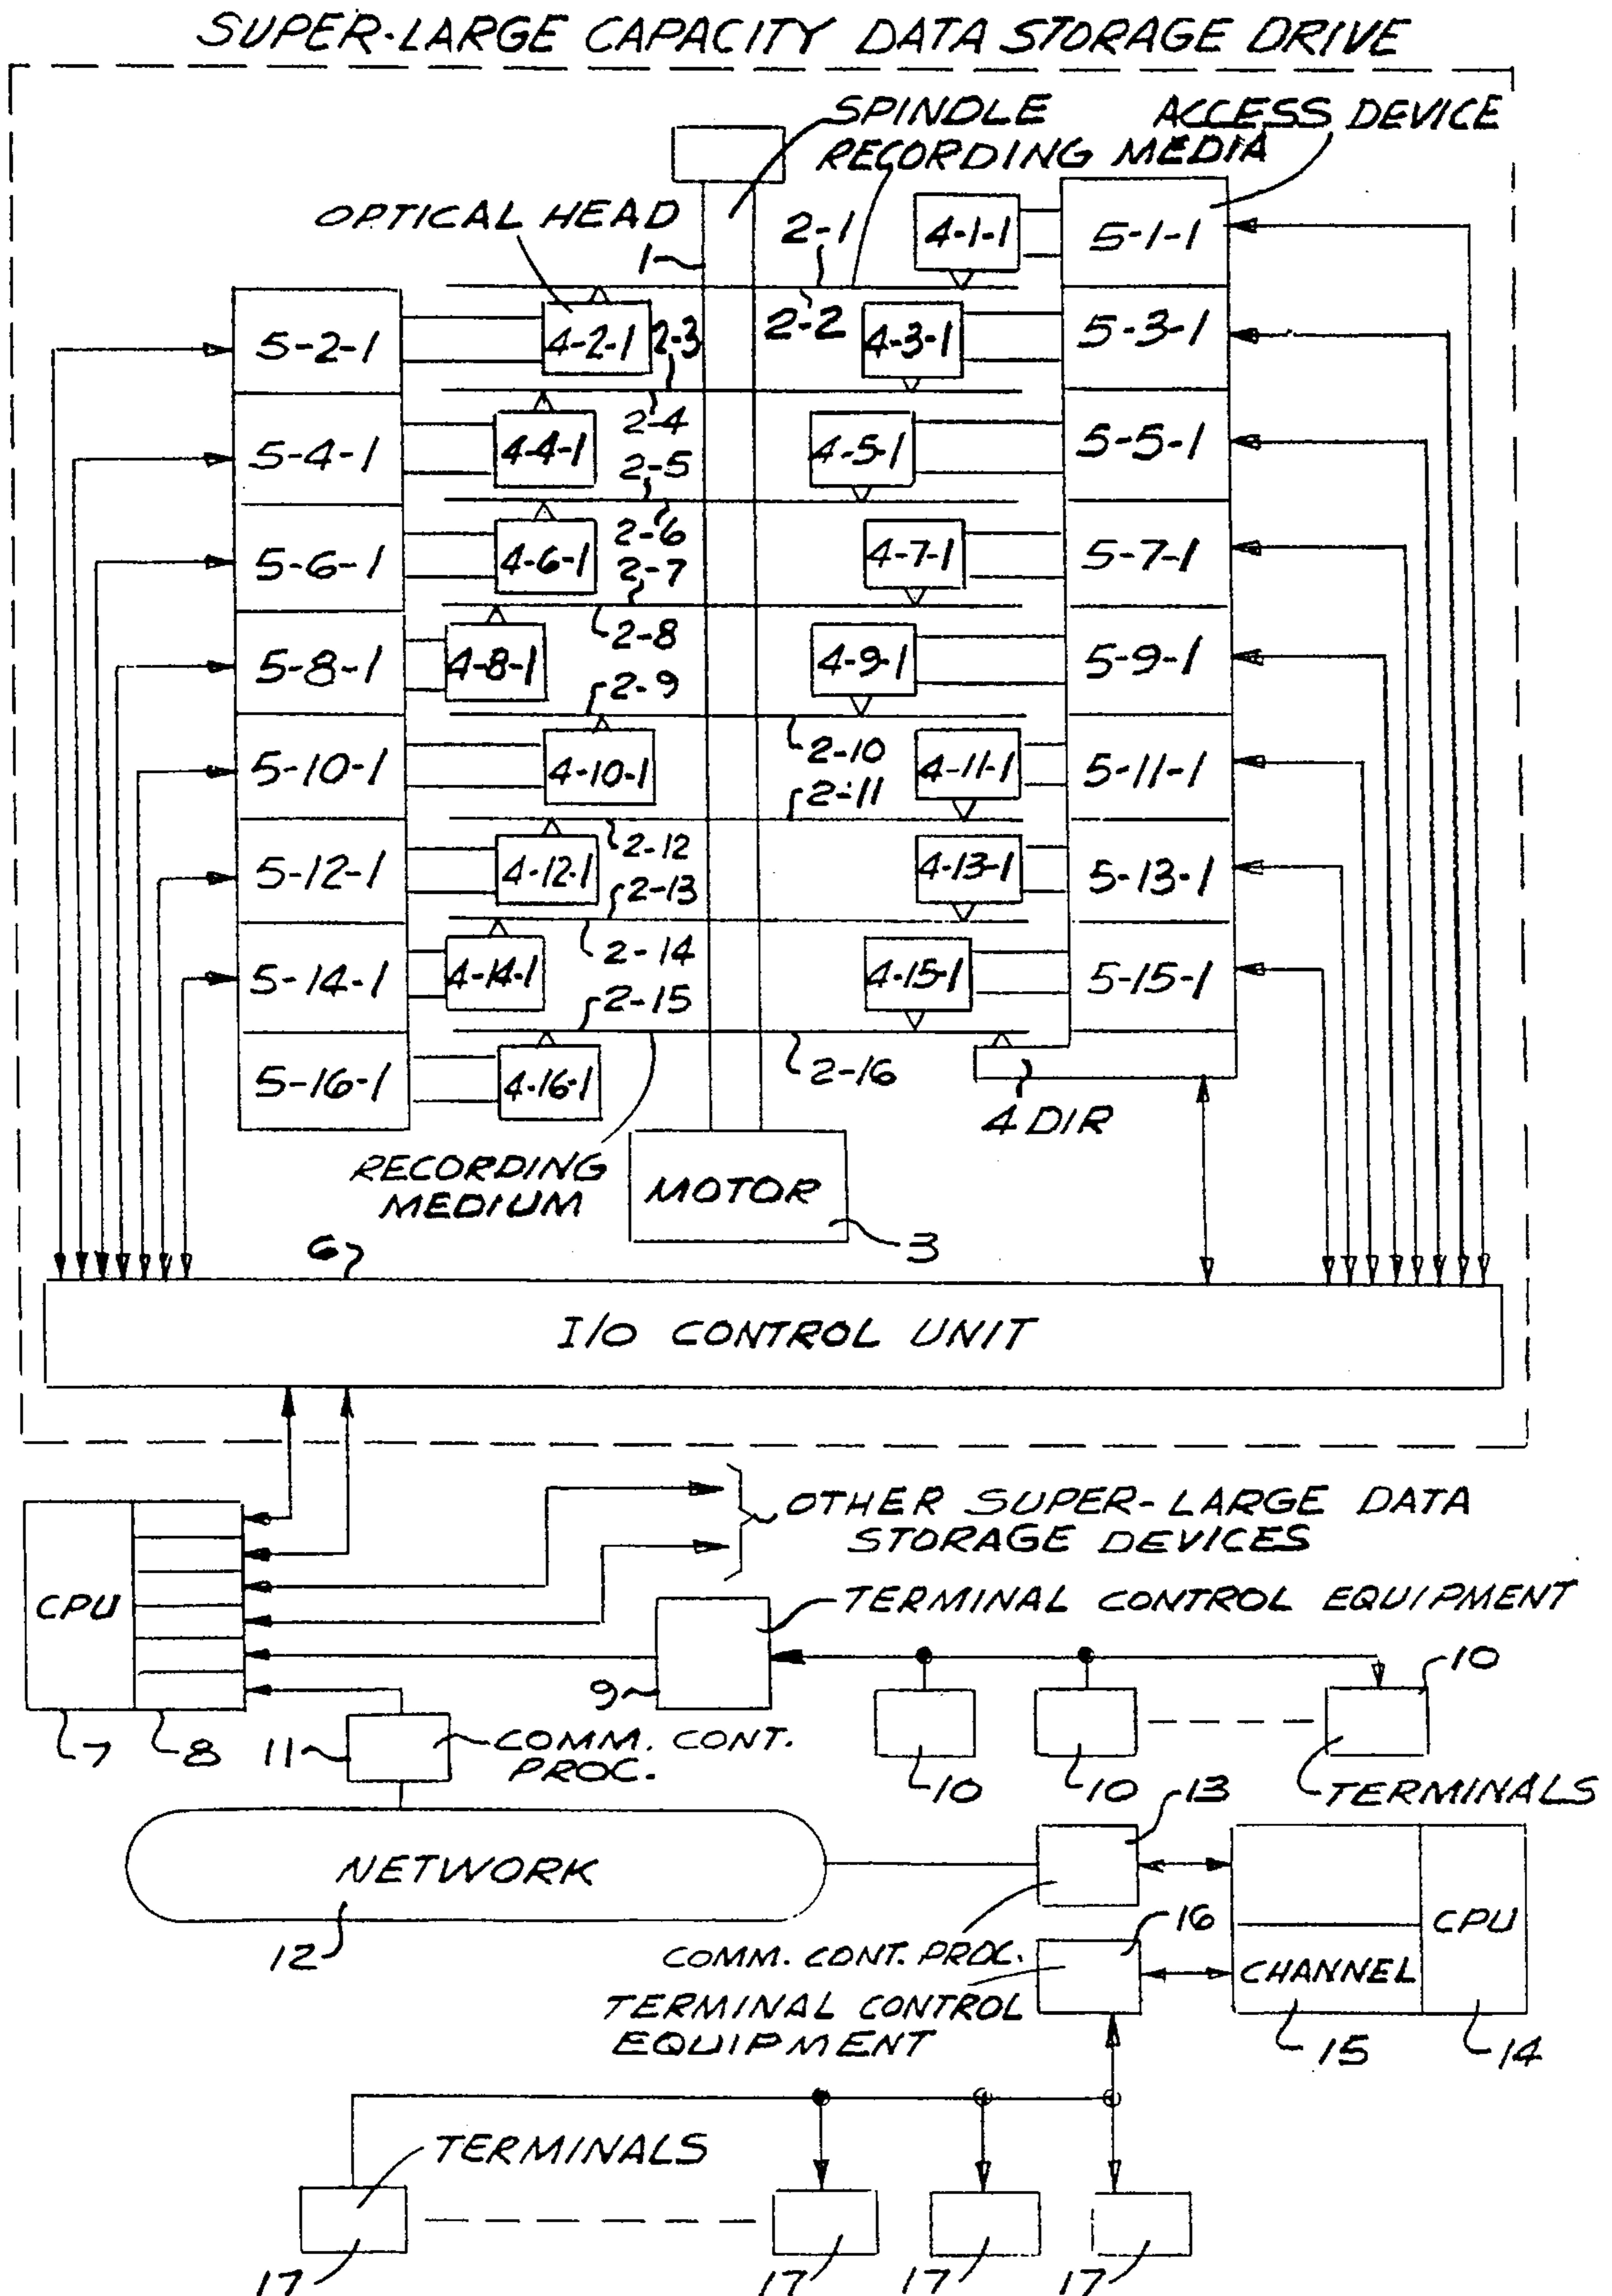 SUPER-LARGE CAPACITY DATA STORAGE DRIVE
SPINDLE
ACCESS DEVICE
RECORDING MEDIA
OPTICAL HEAD
1
2-1
4-1-1
5-1-1
5-2-1
4-2-1
2-3
2-2
4-3-1
5-3-1
2-4
5-4-1
4-4-1
2-5
4-5-1
5-5-1
2-6
5-6-1
4-6-1
2-7
4-7-1
5-7-1
2-8
5-8-1
4-8-1
2-9
4-9-1
5-9-1
2-10
5-10-1
4-10-1
2-11
4-11-1
5-11-1
2-12
5-12-1
4-12-1
2-13
4-13-1
5-13-1
2-14
5-14-1
4-14-1
2-15
4-15-1
5-15-1
2-16
5-16-1
4-16-1
4 DIR
RECORDING
MEDIUM
MOTOR
3
6
I/O CONTROL UNIT
OTHER SUPER-LARGE DATA
STORAGE DEVICES
CPU
TERMINAL CONTROL EQUIPMENT
9
10
7
8
11
COMM. CONT.
PROC.
10
10
TERMINALS
13
NETWORK
12
COMM. CONT. PROC.
16
CPU
CHANNEL
TERMINAL CONTROL
EQUIPMENT
15
14
TERMINALS
17
17
17
17